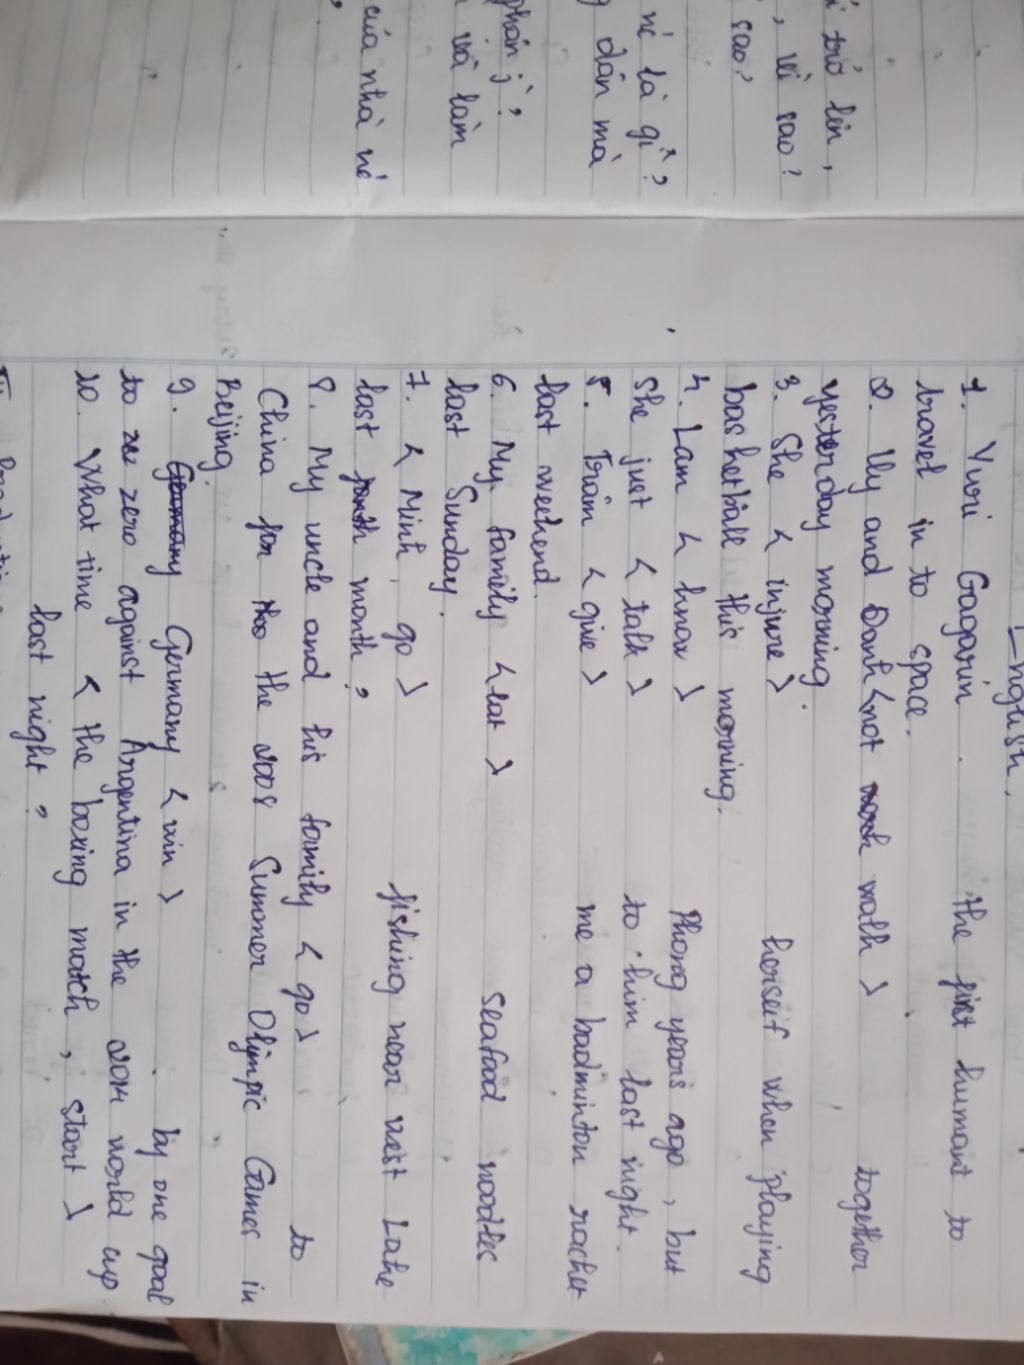 i trỏ lên,
, vì sao?
sao?
né là gì",
g dân mà
phán j",
n và làm
của nhà né
English.
1. Yuri Gagarin the first humant to
travel in to space.
2. Uy and Oanh <not walk > together
yesterday morning.
3. She < injure> herself when playing
basketball this morning.
4. Lan < know > Phong years ago, but
she just < talk > to him last night.
5. Trâm < give > me a badminton racket
last weekend.
6. My family <eat > seafood noodles
last Sunday.
7. < Minh, go > fishing near west Lake
last month ?
8. My uncle and his family < go > to
China for the 2008 Summer Olimpic Games in
Beijing.
9. Germany Germany < win > by one goal
to zero against Argentina in the 2014 world cup.
10. What time < the boxing match, start >
last night ?